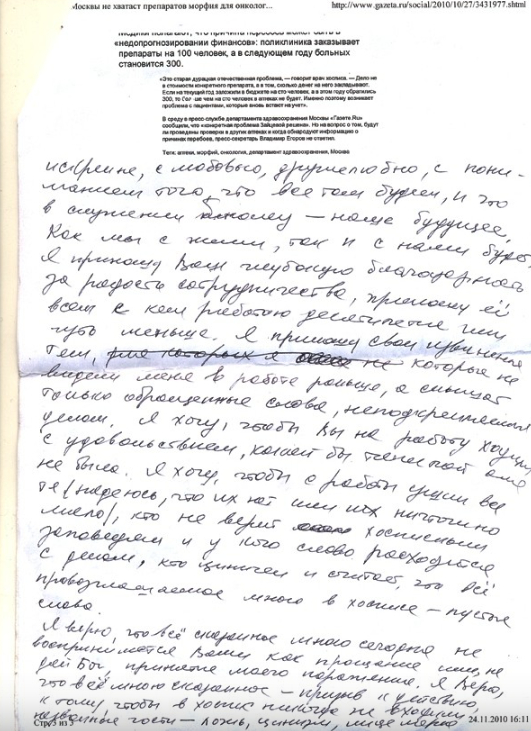 Москвы не хватаст препаратов морфия для онколог...
http://www.gazeta.ru/social/2010/10/27/3431977.shtml
«недопрогнозировании финансов»: поликлиника заказывает
препараты на 100 человек, а в следующем году больных
становится 300.
«Это старая дурацкая отечественная проблема, — говорит врач хосписа. — Дело не
в стоимости конкретного препарата, а в том, сколько денег на него закладывают.
Если на текущий год заложили в бюджете на сто человек, а в этом году обратились
300, то чем на сто человек в аптеках не будет. Именно поэтому возникает
проблема с пациентами, которые вновь встают на учет».
В среду в пресс-службе департамента здравоохранения Москвы «Газете.Ru»
сообщили, что «конкретная проблема Зайцевой решена». Но на вопрос о том, будут
ли проведены проверки в других аптеках и когда обнародуют информацию о
причинах перебоев, пресс-секретарь Владимир Егоров не ответил.
Теги: аптеки, морфий, онкология, департамент здравоохранения, Москва
искренне, с любовью, дружелюбно, с пони-
манием того, что все там будем, и что
в служении – наше будущее,
Как мы с ними, так и с нами будет
Я приношу Вам глубокую благодарность
за радость сотрудничества, приношу её
всем с кем работаю десятилетие или
чуть меньше, Я приношу свои извинения
тем, для которых я не которые не
видели меня в работе раньше, а слышат
только обращенные слова, неподкрепленные
делом. Я хочу, чтобы Вы на работу ходили
с удовольствием, какой бы тяжелой она
не была. Я хочу, чтобы с работы ушли все
те (надеюсь, что их нет или их ничтожно
мало), кто не верит хосписным
заповедям и у кого слово расходится
с делом, кто циничен и считает, что всё
провозглашаемое мною в хосписе – пустые
слова.
Я верю, что всё сказанное мною сегодня не
воспринимется Вами как прощание или, не
дай Бог, принятие моего поражения. Я верю,
что всё мною сказанное – призыв к действию,
к тому, чтобы в хоспис никогда не входили
незваные гости – ложь, цинизм, лицемерие
Стр. 3 из 3
24.11.2010 16:11